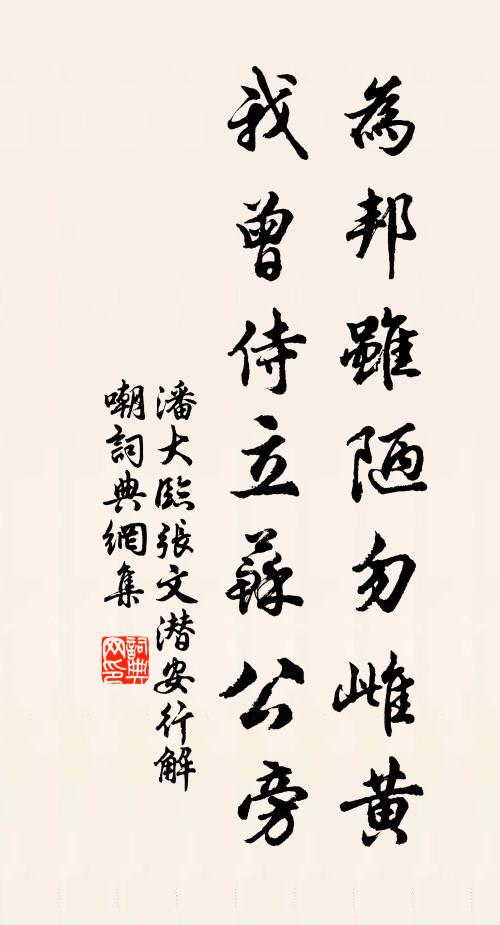 為邦雖陋勿雌黄
我曾侍立蘇公旁
潘大臨張文潜安行解
嘲詞典網集
詞典
网印